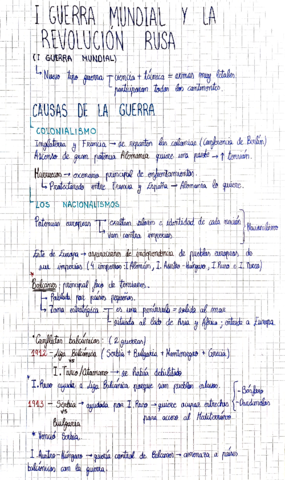 I GUERRA MUNDIAL Y LA
REVOLUCIÓN RUSA
(I GUERRA MUNDIAL)
Nuevo tipo guerra ciencia + técnica = armas muy letales
participaron todos los continentes.
CAUSAS DE LA GUERRA
COLONIALISMO
Inglaterra y Francia → se reparten las colonias (Conferencia de Berlín)
Ascenso de gran potencia Alemania quiere una parte → ↑ tensión.
Marruecos → escenario principal de enfrentamientos.
Protectorado entre Francia y España → Alemania lo quiere.
LOS NACIONALISMOS
Potencias europeas exaltan valores e identidad de cada nación
van contra imperios
Este de Europa → aspiraciones de independencia de pueblos europeos de
sus imperios (4 imperios: I. Alemán, I. Austro-húngaro, I. Ruso e I. Turco)
* Balcanes: principal foco de tensiones.
Poblada por países pequeños.
Zona estratégica → es una península → salida al mar
situada al lado de Asia y África; entrada a Europa.
"Conflictos balcánicos: (2 guerras)
1912 - Liga Balcánica (Serbia + Bulgaria + Montenegro + Grecia)
vs
I. Turco/Otomano → se había debilitado
* I. Ruso ayuda a Liga Balcánica porque son pueblos eslavos.
1913 - Serbia → ayudada por I. Ruso → quiere ocupar estrechos
vs
Bulgaria
para acceso al Mediterráneo.
- Bósforo
- Dardanelos
* Venció Serbia.
I. Austro-Húngaro → quería control de Balcanes → amenaza a países
balcánicos con la guerra.